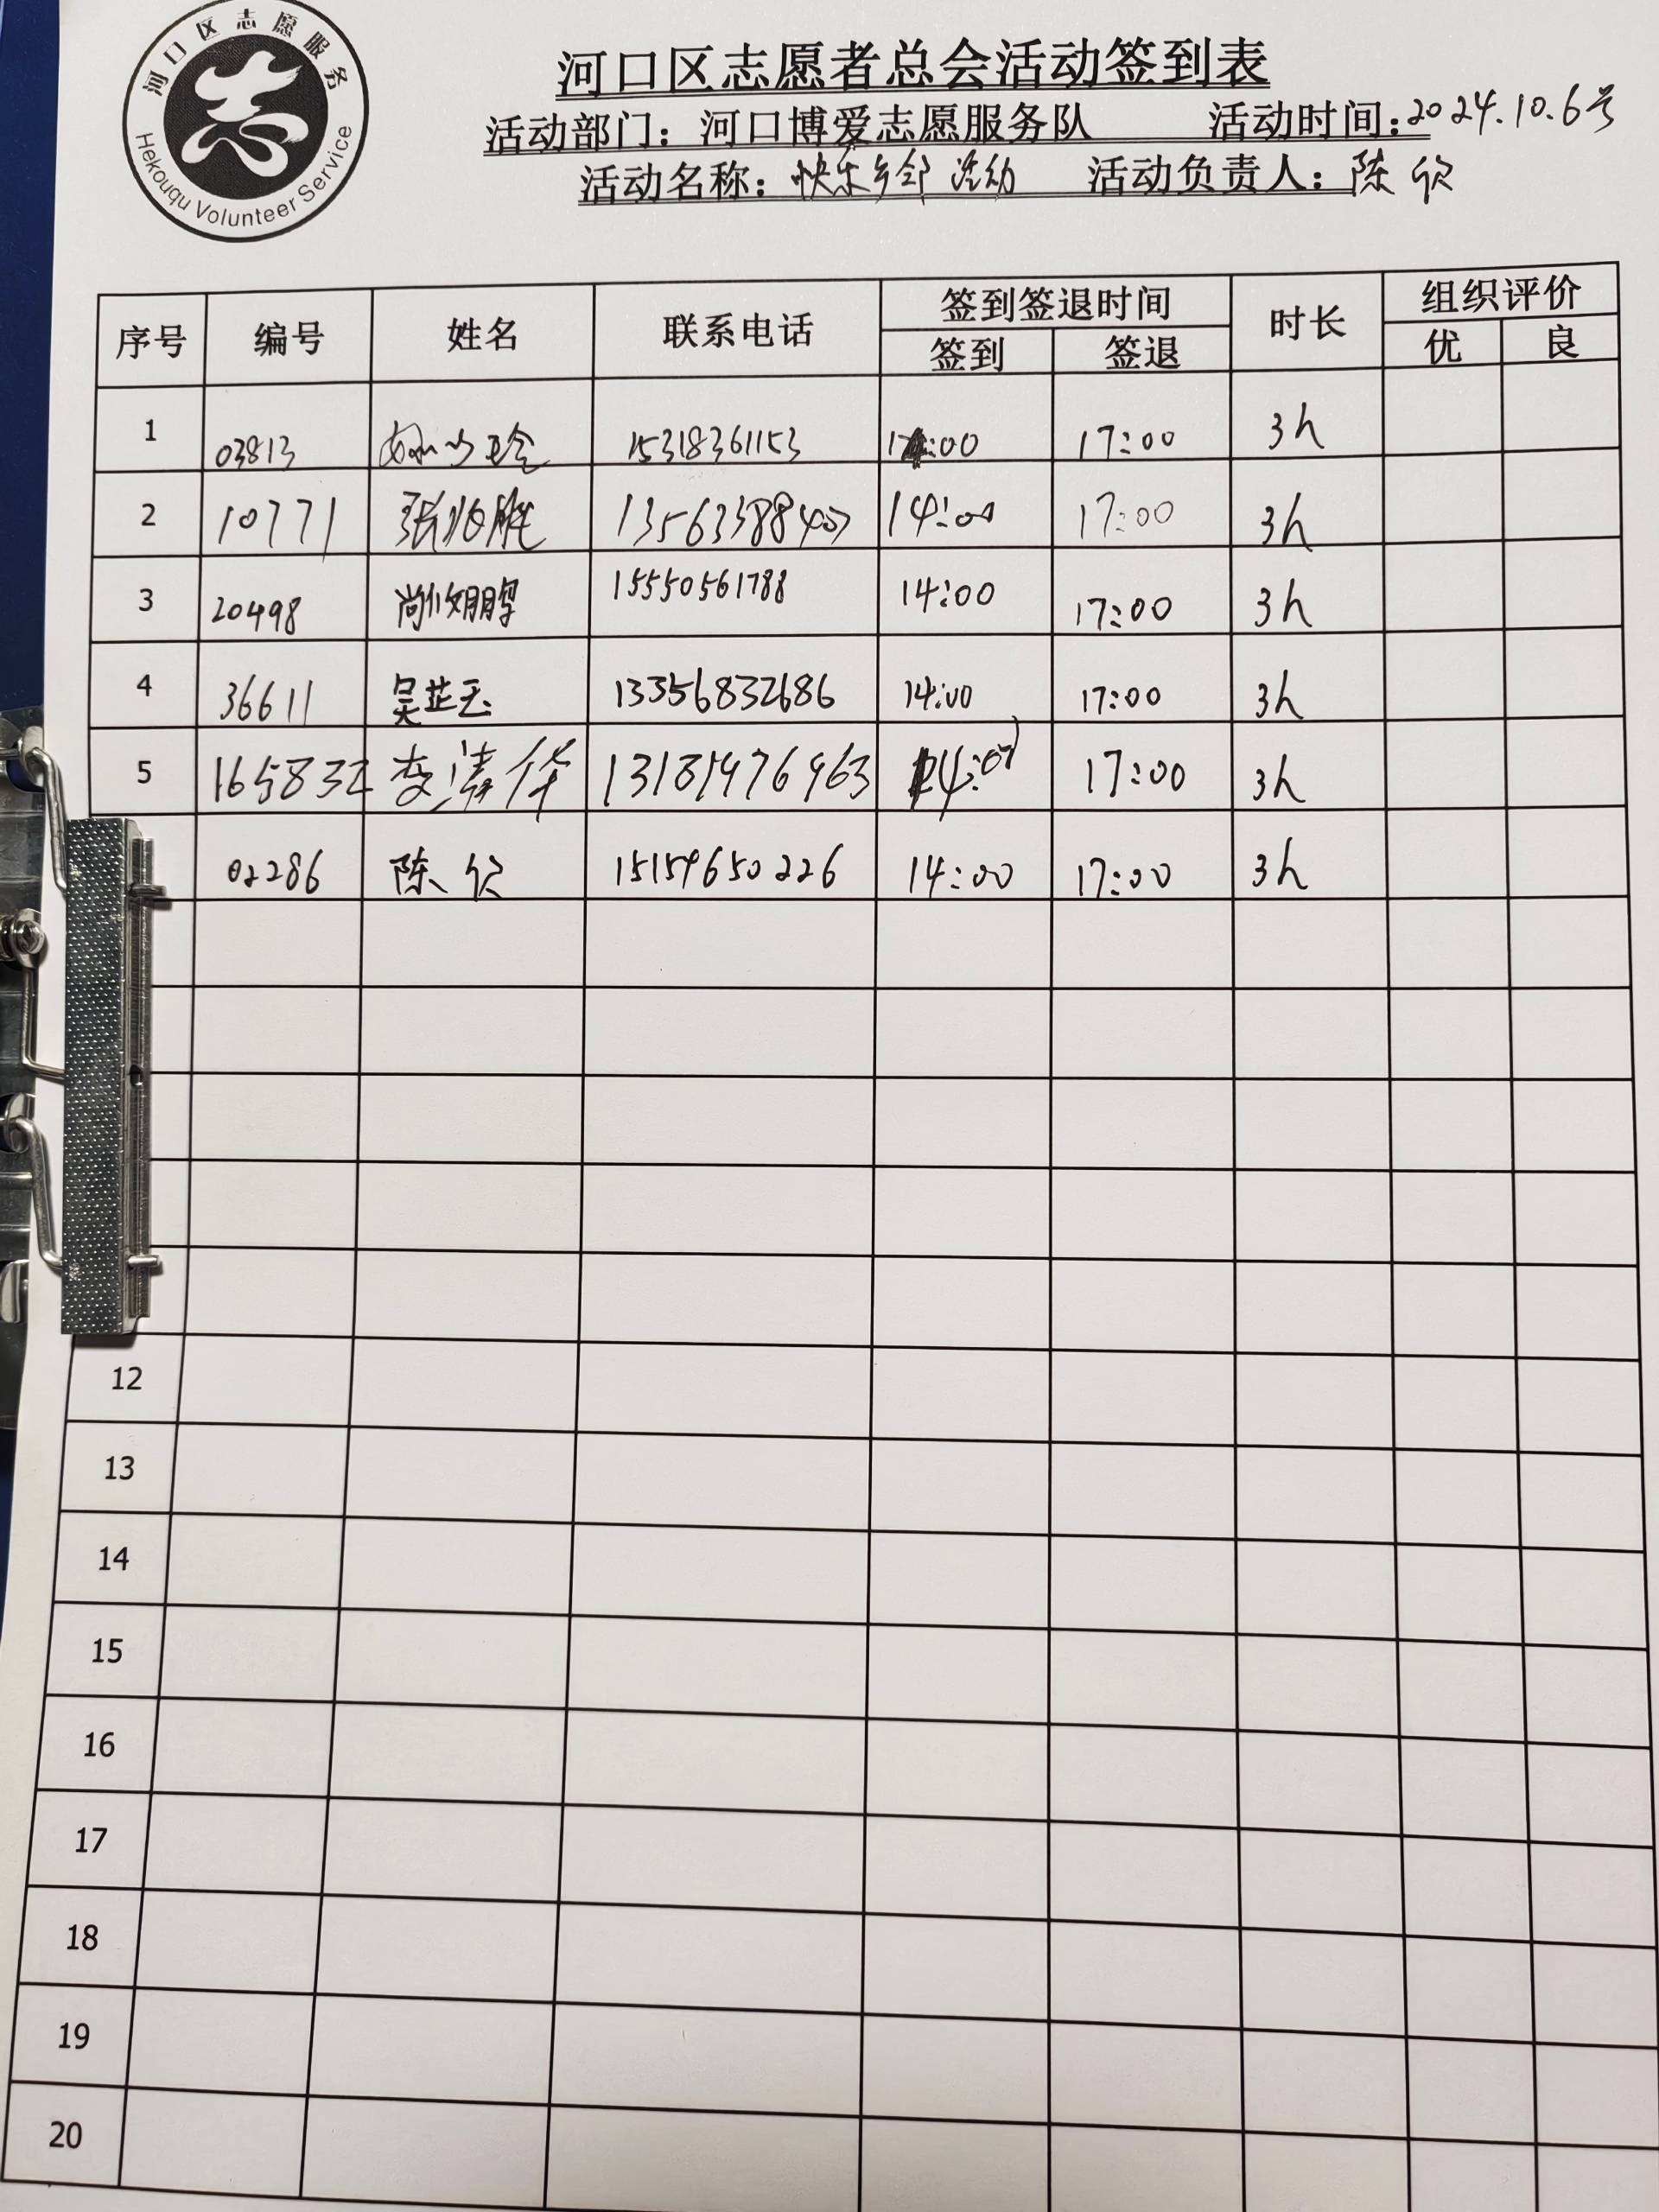 河口区志愿服务
Hekouqu Volunteer Service
河口区志愿者总会活动签到表
活动部门：河口博爱志愿服务队 活动时间：2024.10.6号
活动名称：快乐乡邻 活动 活动负责人：陈欣
序号 编号 姓名 联系电话 签到签退时间 时长 组织评价
签到 签退 优 良
1 03813 15318361153 17:00 3h
2 10771 14:00 17:00 3h
3 20498 15550561788 14:00 17:00 3h
4 36611 吴芷玉 13356832686 14:00 17:00 3h
5 165832 李清华 14:00 17:00 3h
02286 陈欣 15154650226 14:00 17:00 3h
12
13
14
15
16
17
18
19
20